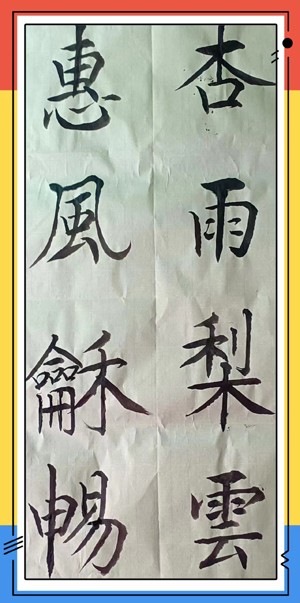 杏雨梨雲
惠風龢暢